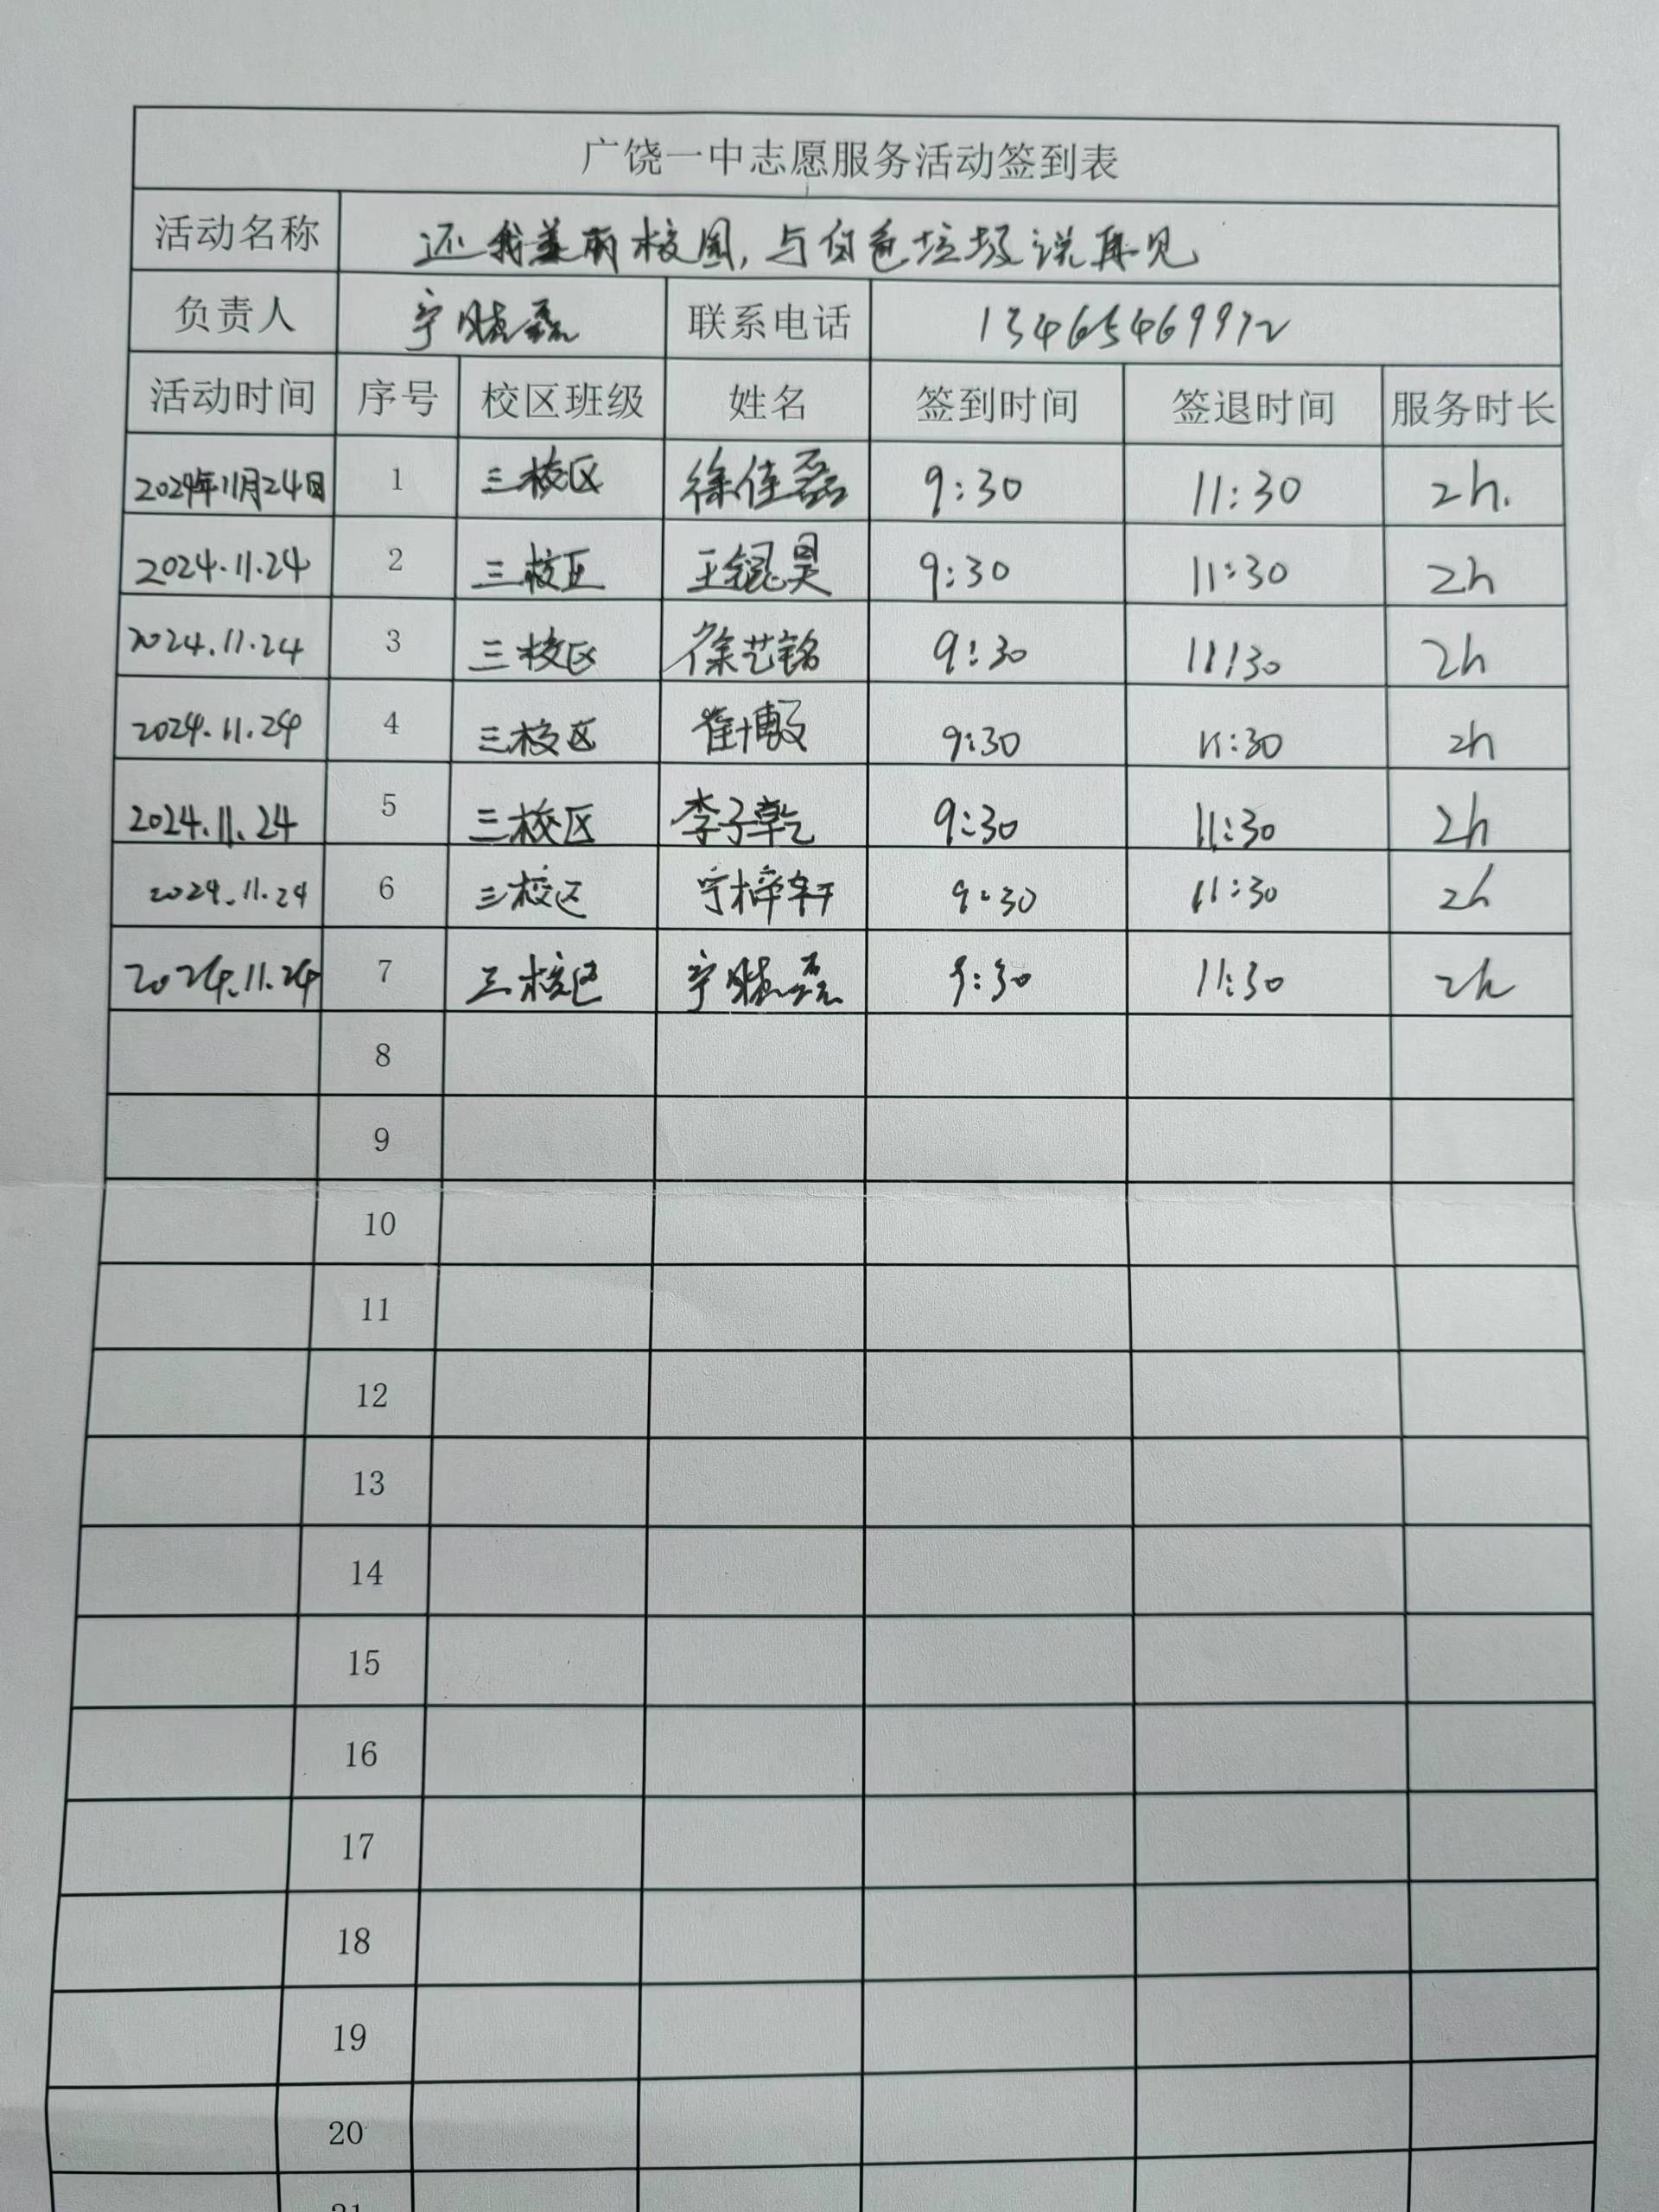 广饶一中志愿服务活动签到表
活动名称 还我美丽校园,与白色垃圾说再见
负责人 宁晓磊 联系电话 13465469912
活动时间 序号 校区班级 姓名 签到时间 签退时间 服务时长
2024年11月24日 1 三校区 徐佳磊 9:30 11:30 2h.
2024.11.24 2 三校区 王锟昊 9:30 11:30 2h
2024.11.24 3 三校区 徐艺铭 9:30 11:30 2h
2024.11.24 4 三校区 崔博 9:30 11:30 2h
2024.11.24 5 三校区 李子乾 9:30 11:30 2h
2024.11.24 6 三校区 宁梓轩 9:30 11:30 2h
2024.11.24 7 三校区 宁晓磊 9:30 11:30 2h
8
9
10
11
12
13
14
15
16
17
18
19
20